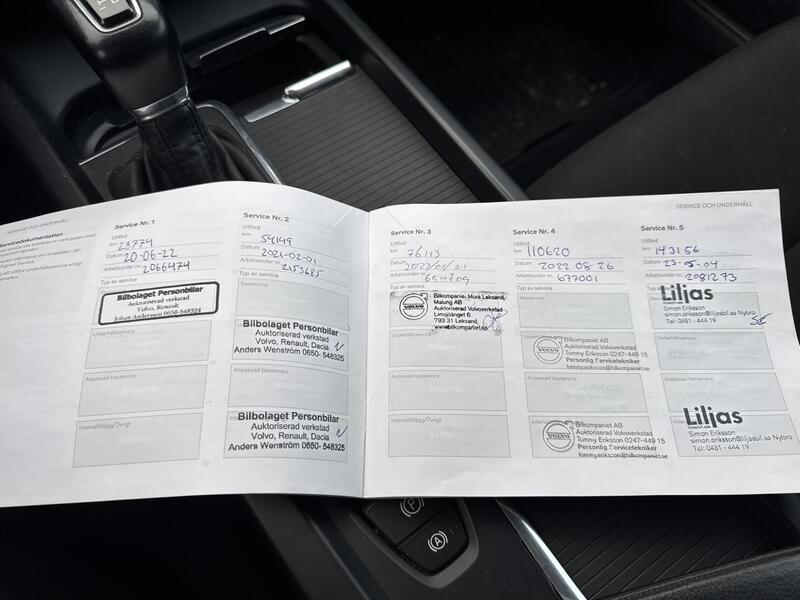 SERVICE OCH UNDERHÅLL
Servicedokumentation
Service Nr. 1
Utförd
km 28774
Datum 20-06-22
Arbetsorder nr. 2066474
Typ av service
Bilbolaget Personbilar
Auktoriserad verkstad
Volvo, Renault
Johan Andersson 0650-548324
Underhållsservice
STÄMPEL
Anpassad basservice
STÄMPEL
Intervalltillägg/Övrigt
STÄMPEL
Service Nr. 2
Utförd
km 54149
Datum 2021-02-01
Arbetsorder nr. 2153685
Typ av service
Basservice
Bilbolaget Personbilar
Auktoriserad verkstad
Volvo, Renault, Dacia
Anders Wenström 0650-548325
Anpassad basservice
STÄMPEL
Bilbolaget Personbilar
Auktoriserad verkstad
Volvo, Renault, Dacia
Anders Wenström 0650-548325
Service Nr. 3
Utförd
km 76113
Datum 2022/01/21
Arbetsorder nr. 654709
Typ av service
VOLVO
Bilkompaniet Mora Leksand,
Malung AB
Auktoriserad Volvoverkstad
Limsjöänget 6
793 31 Leksand,
www.bilkompaniet.se
Underhållsservice
STÄMPEL
Anpassad basservice
STÄMPEL
Intervalltillägg/Övrigt
STÄMPEL
Service Nr. 4
Utförd
km 110620
Datum 2022 08 26
Arbetsorder nr. 677001
Typ av service
Basservice
STÄMPEL
VOLVO
Bilkompaniet AB
Auktoriserad Volvoverkstad
Tommy Eriksson 0247-448 15
Personlig Servicetekniker
tommy.eriksson@bilkompaniet.se
Anpassad basservice
VOLVO
Bilkompaniet AB
Auktoriserad Volvoverkstad
Tommy Eriksson 0247-448 15
Personlig Servicetekniker
tommy.eriksson@bilkompaniet.se
SERVICE OCH UNDERHÅLL
Service Nr. 5
Utförd
km 143156
Datum 23-05-04
Arbetsorder nr. 2081273
Typ av service
Liljas
Simon Eriksson
simon.eriksson@liljasbil.se Nybro
Tel: 0481 - 444 19
SE
Underhållsservice
STÄMPEL
Anpassad basservice
STÄMPEL
Liljas
Simon Eriksson
simon.eriksson@liljasbil.se Nybro
Tel: 0481 - 444 19
(P)
(A)